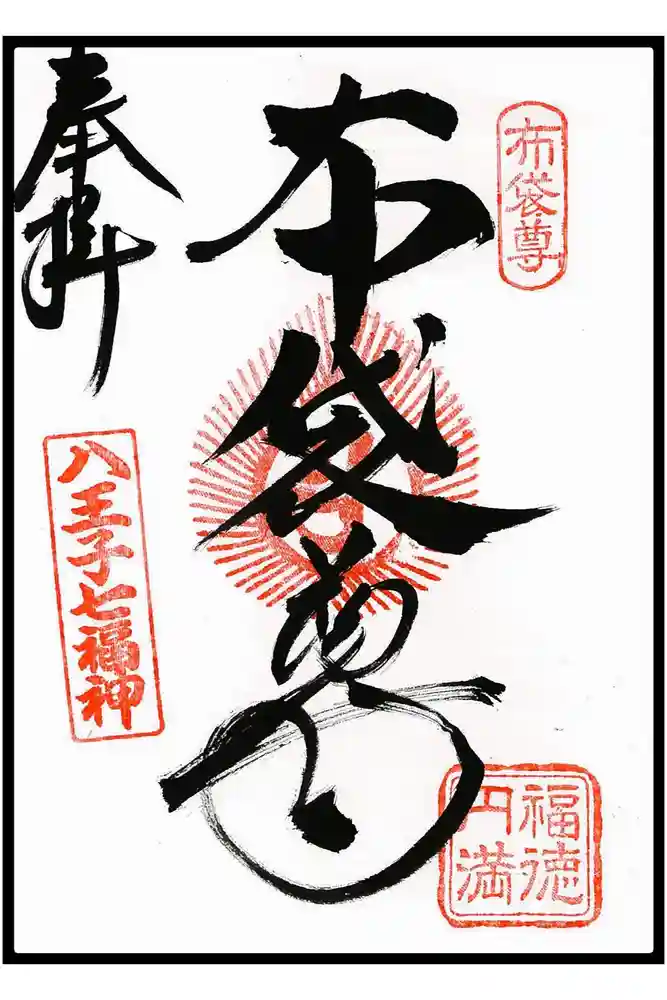 布袋尊
布袋尊
福徳
円満
奉拝
八王子七福神